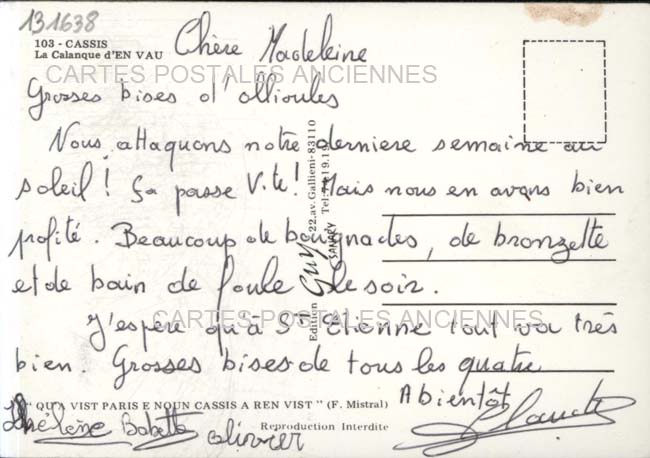 131638
103 - CASSIS
La Calanque d'EN VAU
Chère Madeleine
CARTES POSTALES ANCIENNES
Grosses bises d'ollioules
Nous attaquons notre derniere semaine au
soleil ! Ça passe Vite ! Mais nous en avons bien
profité. Beaucoup de baignades, de bronzette
et de bain de foule le soir.
CARTES POSTALES ANCIENNES
J'espère qu'à St Etienne tout va très
bien. Grosses bises de tous les quatre
Edition GUY 22, av. Gallieni - 83110
SANARY
A bientôt
" QU'A VIST PARIS E NOUN CASSIS A REN VIST " (F. Mistral)
Reproduction Interdite
Hélène Babette olivier